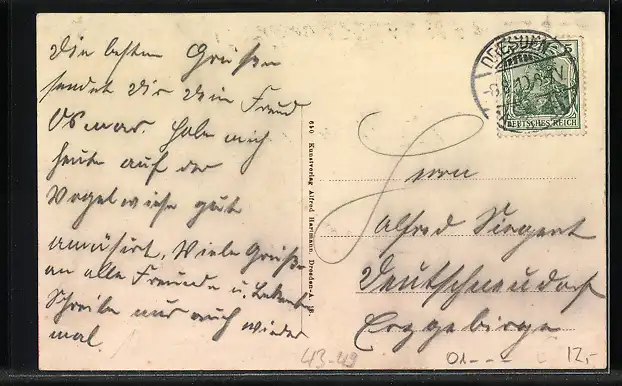 Die besten Grüße
sendet Dir Dein Freund
Osmar. Habe mich
heute auf der
Vogelwiese gut
amüsirt. Viele Grüße
an alle Freunde u.
Schreibe nur auch wieder
mal.
650 Kunstverlag Alfred Hartmann, Dresden-A. 18.
DRESDEN
5
DEUTSCHES REICH
Herrn
Alfred Siegert
Deutschneudorf
Erzgebirge
43-49
01
12,-